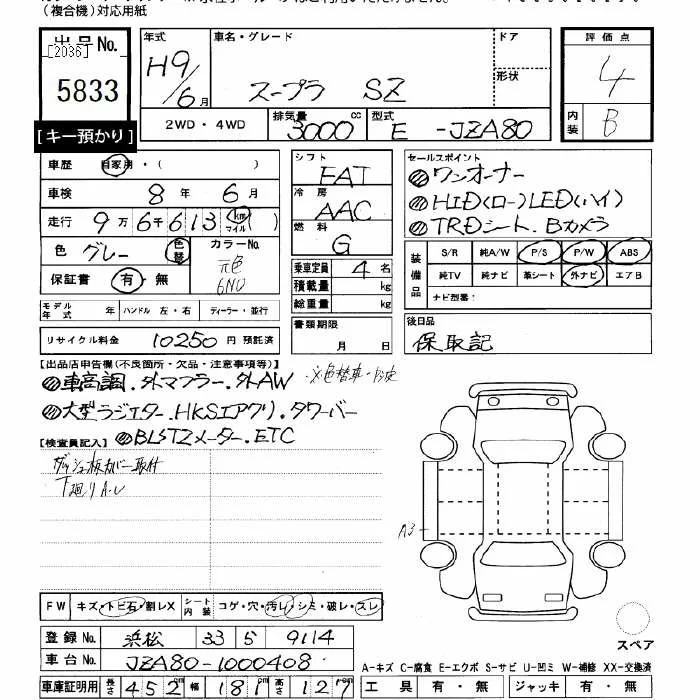 （複合機）対応用紙
出品No.
[2036]
5833
[キー預かり]
年式
H9/6月
車名・グレード
スープラ SZ
ドア
形状
2WD・4WD
排気量
3000cc
型式
E -JZA80
評価点
4
内装
B
車歴 自家用・( )
車検 8年 6月
走行 9万6千613 km マイル
色 グレー 色替
カラーNo.
元色
6N0
保証書 有・無
モデル年式 年 ハンドル 左・右 ディーラー・並行
リサイクル料金 10250円 預託済
シフト
FAT
冷房
AAC
燃料
G
乗車定員 4名
積載量 kg
総重量 kg
書類期限
月 日
セールスポイント
ワンオーナー
HID(ロー)LED(ハイ)
TRDシート.Bカメラ
装備品
S/R 純A/W P/S P/W ABS
純TV 純ナビ 革シート 外ナビ エアB
ナビ型番：
後日品
保取記
【出品店申告欄(不良箇所・欠品・注意事項等)】
車高調.外マフラー.外AW
大型ラジエター.HKSエアクリ.タワーバー
BLSTZメーター.ETC
【検査員記入】
ダッシュ板カバー取付
下廻りA.U
A3
FW キズ・トビ石・割レX
シート内装 コゲ・穴・汚レ・シミ・破レ・スレ
登録No. 浜松 33 ら 9114
車台No. JZA80-1000408
車庫証明用 長さ 452 幅 181 高さ 127
スペア
A-キズ C-腐食 E-エクボ S-サビ U-凹ミ W-補修 XX-交換済
工具 有・無 ジャッキ 有・無